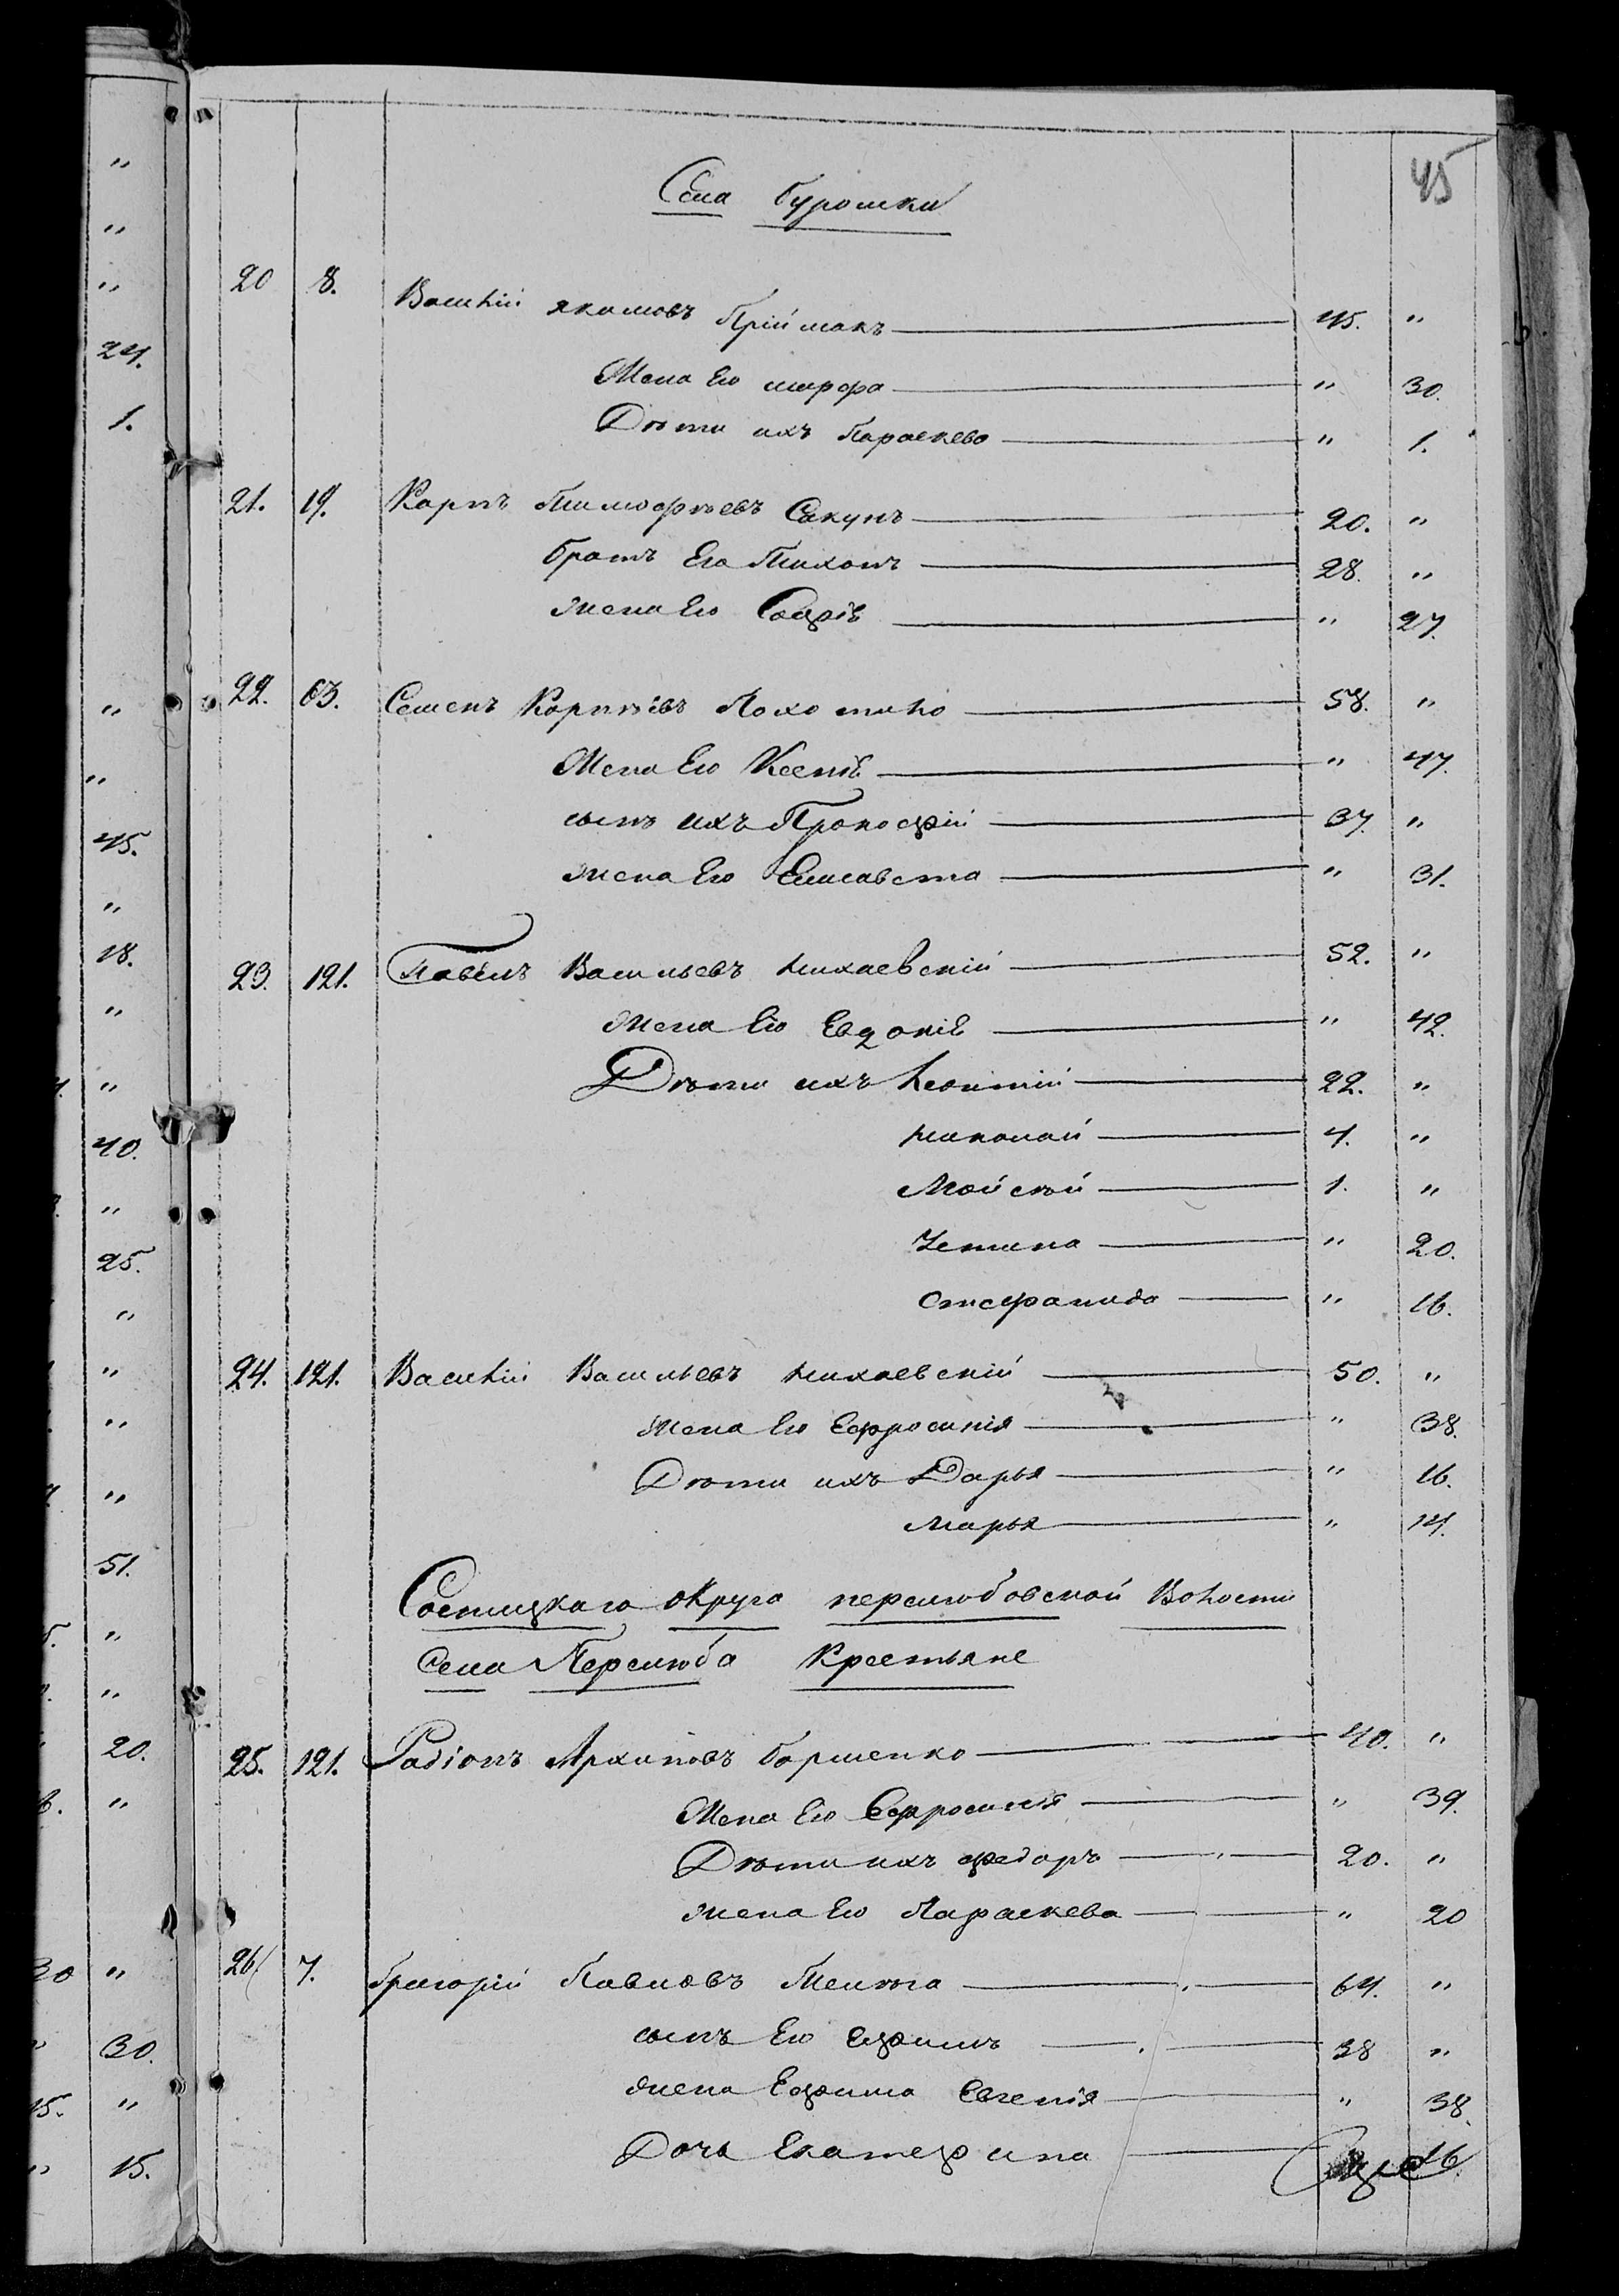 45
Села Буромки
20 8. Василій Якимовъ Пріймакъ 45. "
Жена Его Марфа " 30.
Дѣти ихъ Параскева " 1.
21. 19. Карпъ Тимофѣевъ Сакунъ 20. "
Братъ Его Тихонъ 28. "
Жена Его Софія " 27.
22. 63. Семенъ Корнѣевъ Похотило 58. "
Жена Его Ксенія " 47.
сынъ ихъ Прокофій 37. "
Жена Его Елисавета " 31.
23. 121. Павелъ Васильевъ Лихаевскій 52. "
Жена Его Евдокія " 42.
Дѣти ихъ Леонтій 22. "
Николай 4. "
Мойсей 1. "
Устина " 20.
Стефанида " 16.
24. 121. Василій Васильевъ Лихаевскій 50. "
Жена Его Ефросинія " 38.
Дѣти ихъ Дарья " 16.
Марья " 14.
Сосницкаго округа перелюбовской Волости
Села Перелюба Крестьяне
25. 121. Радіонъ Архиповъ Боршенко 40. "
Жена Его Ефросинія " 39.
Дѣти ихъ Федоръ 20. "
Жена Его Параскева " 20
26 7. Григорій Павловъ Мелюга 64. "
сынъ Его Ефимъ 38 "
Жена Ефима Евгенія " 38.
Дочь Екатерина 16.